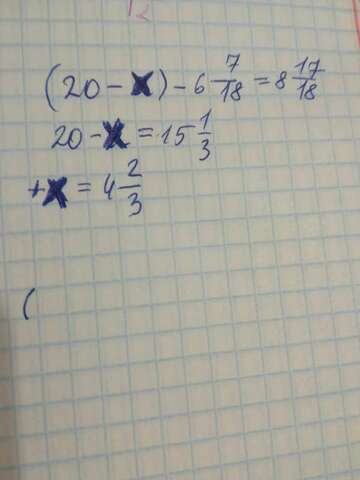 (20 - x) - 6 7/18 = 8 17/18
20 - x = 15 1/3
+x = 4 2/3
(